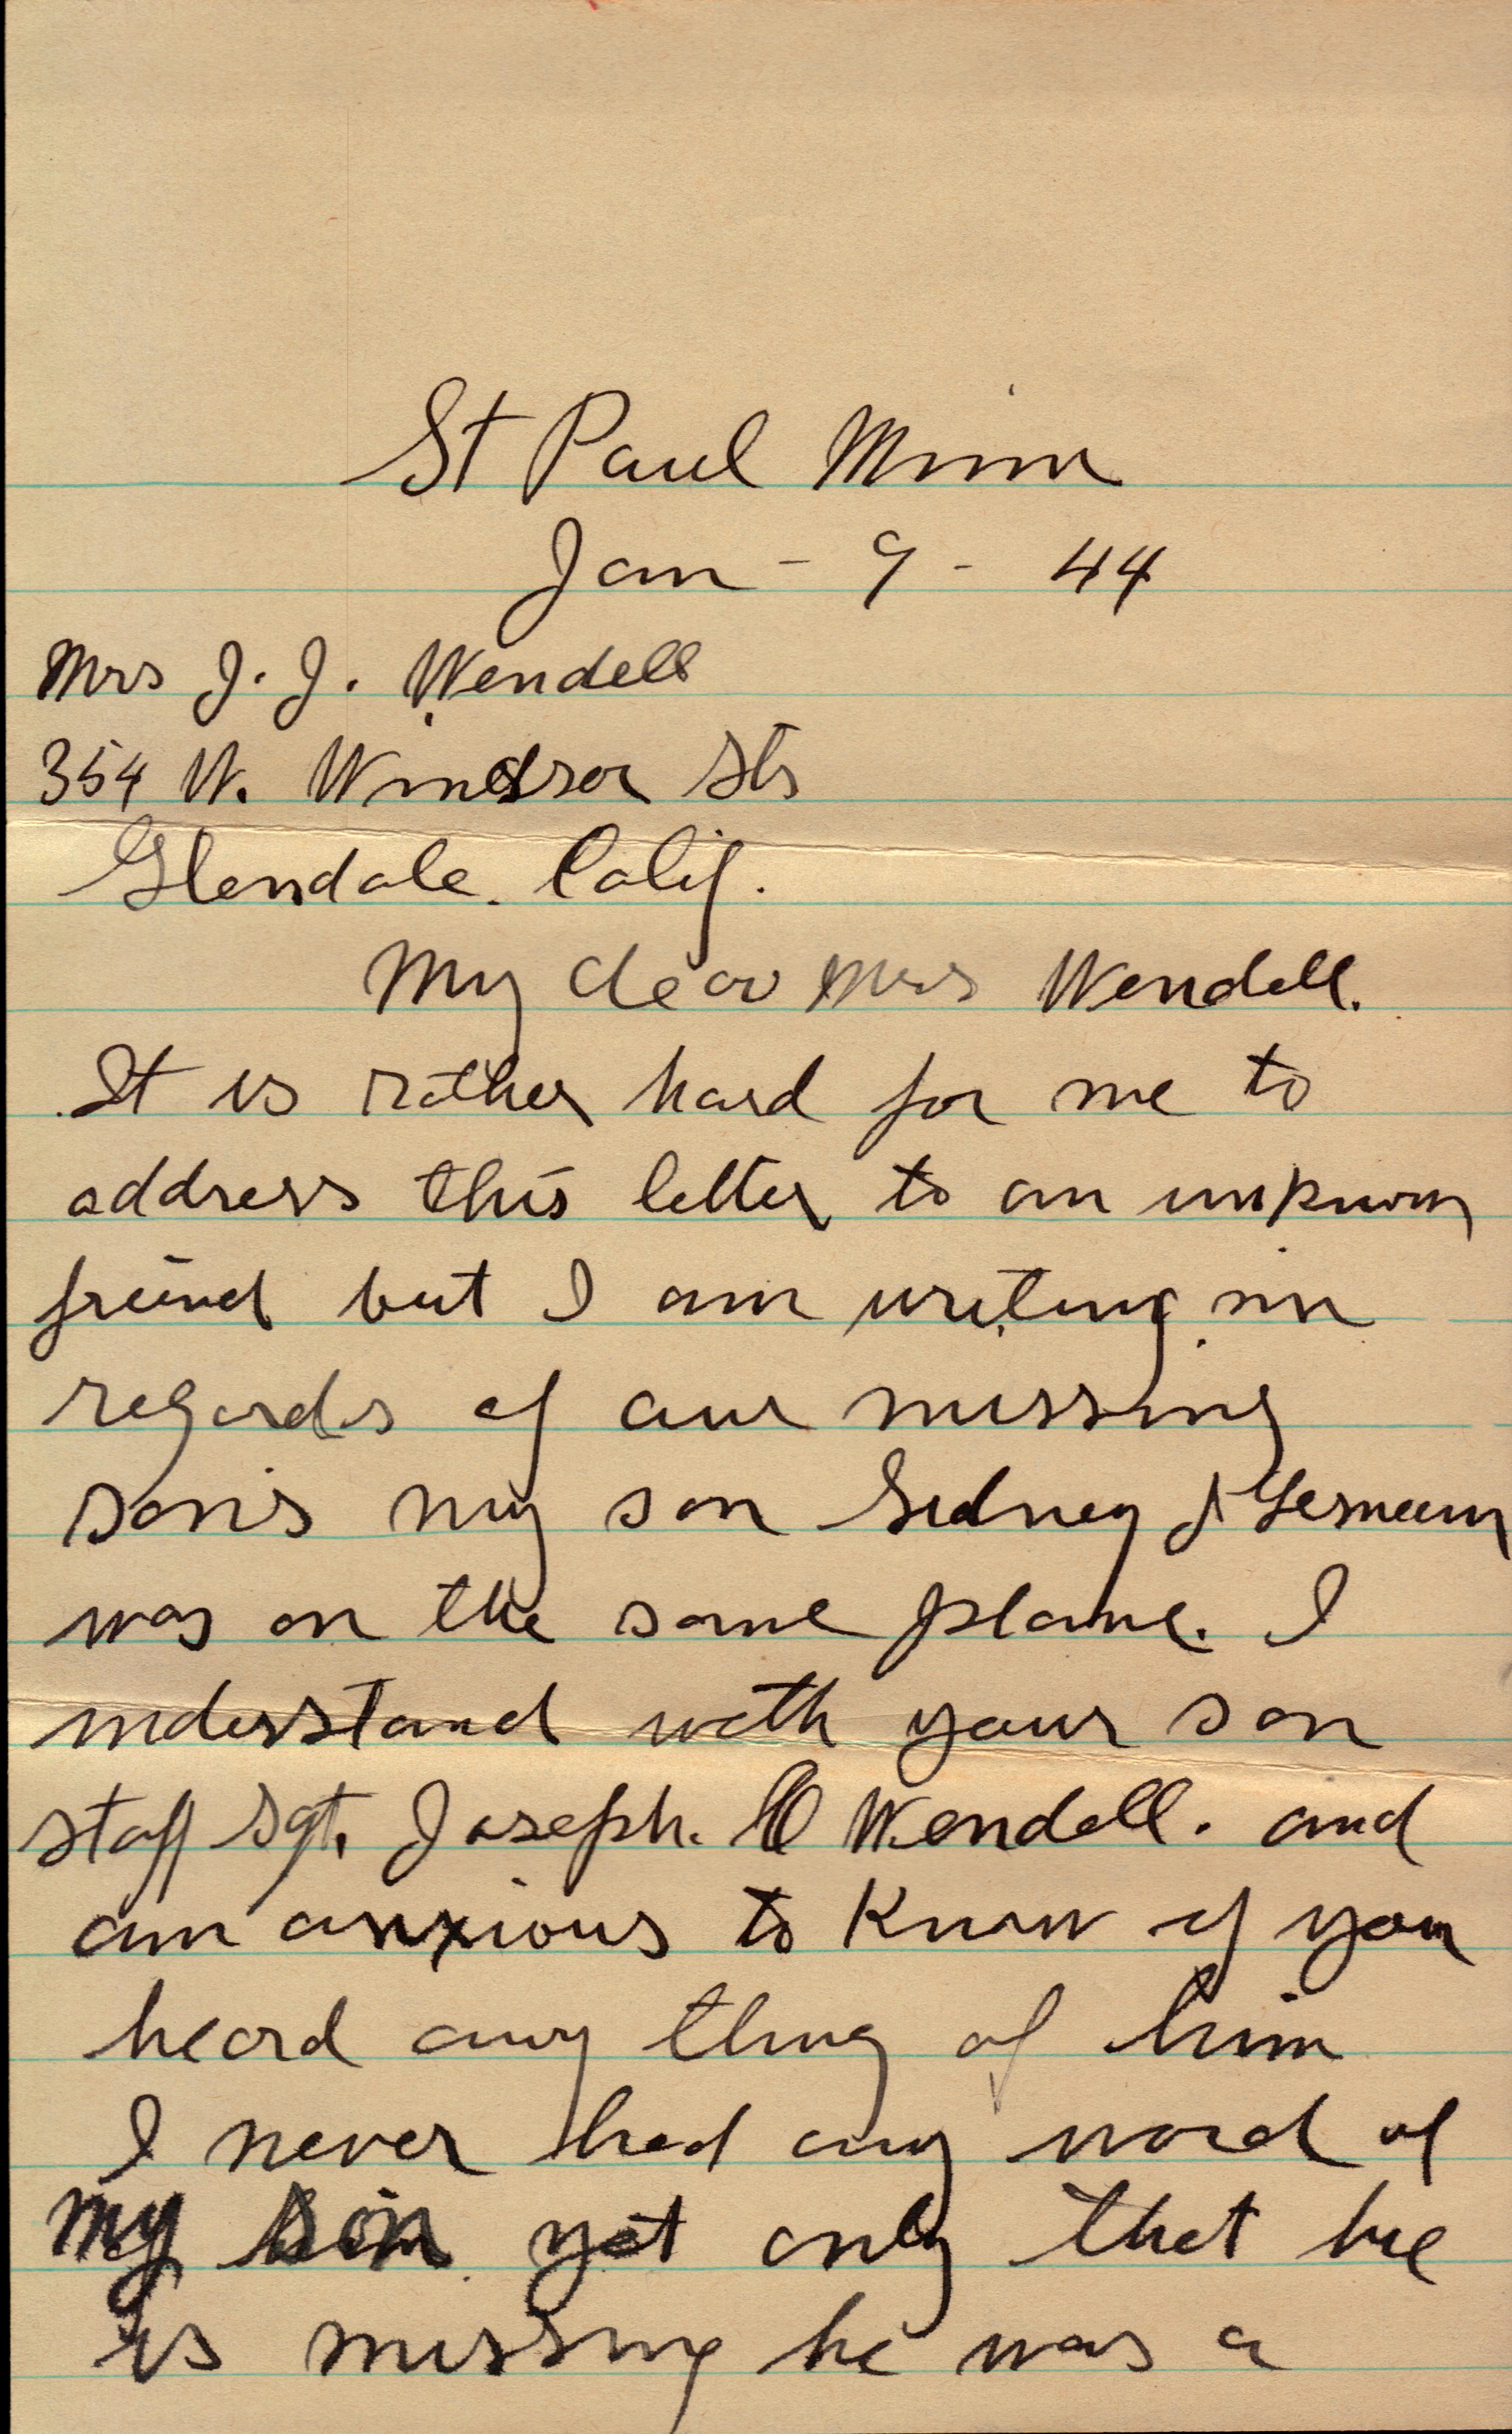 St Paul Minn
Jan - 9 - 44
Mrs J. J. Wendell
354 W. Windsor Str
Glendale. Calif.
My dear Mrs Wendell.
It is rather hard for me to
address this letter to an unknown
freind but I am writing in
regards of our missing
son's my son Sidney
was on the same plane. I
understand with your son
staff Sgt. Joseph. Wendell. and
am anxious to know if you
heard any thing of him
I never had any word of
my son yet only that he
is missing he was a